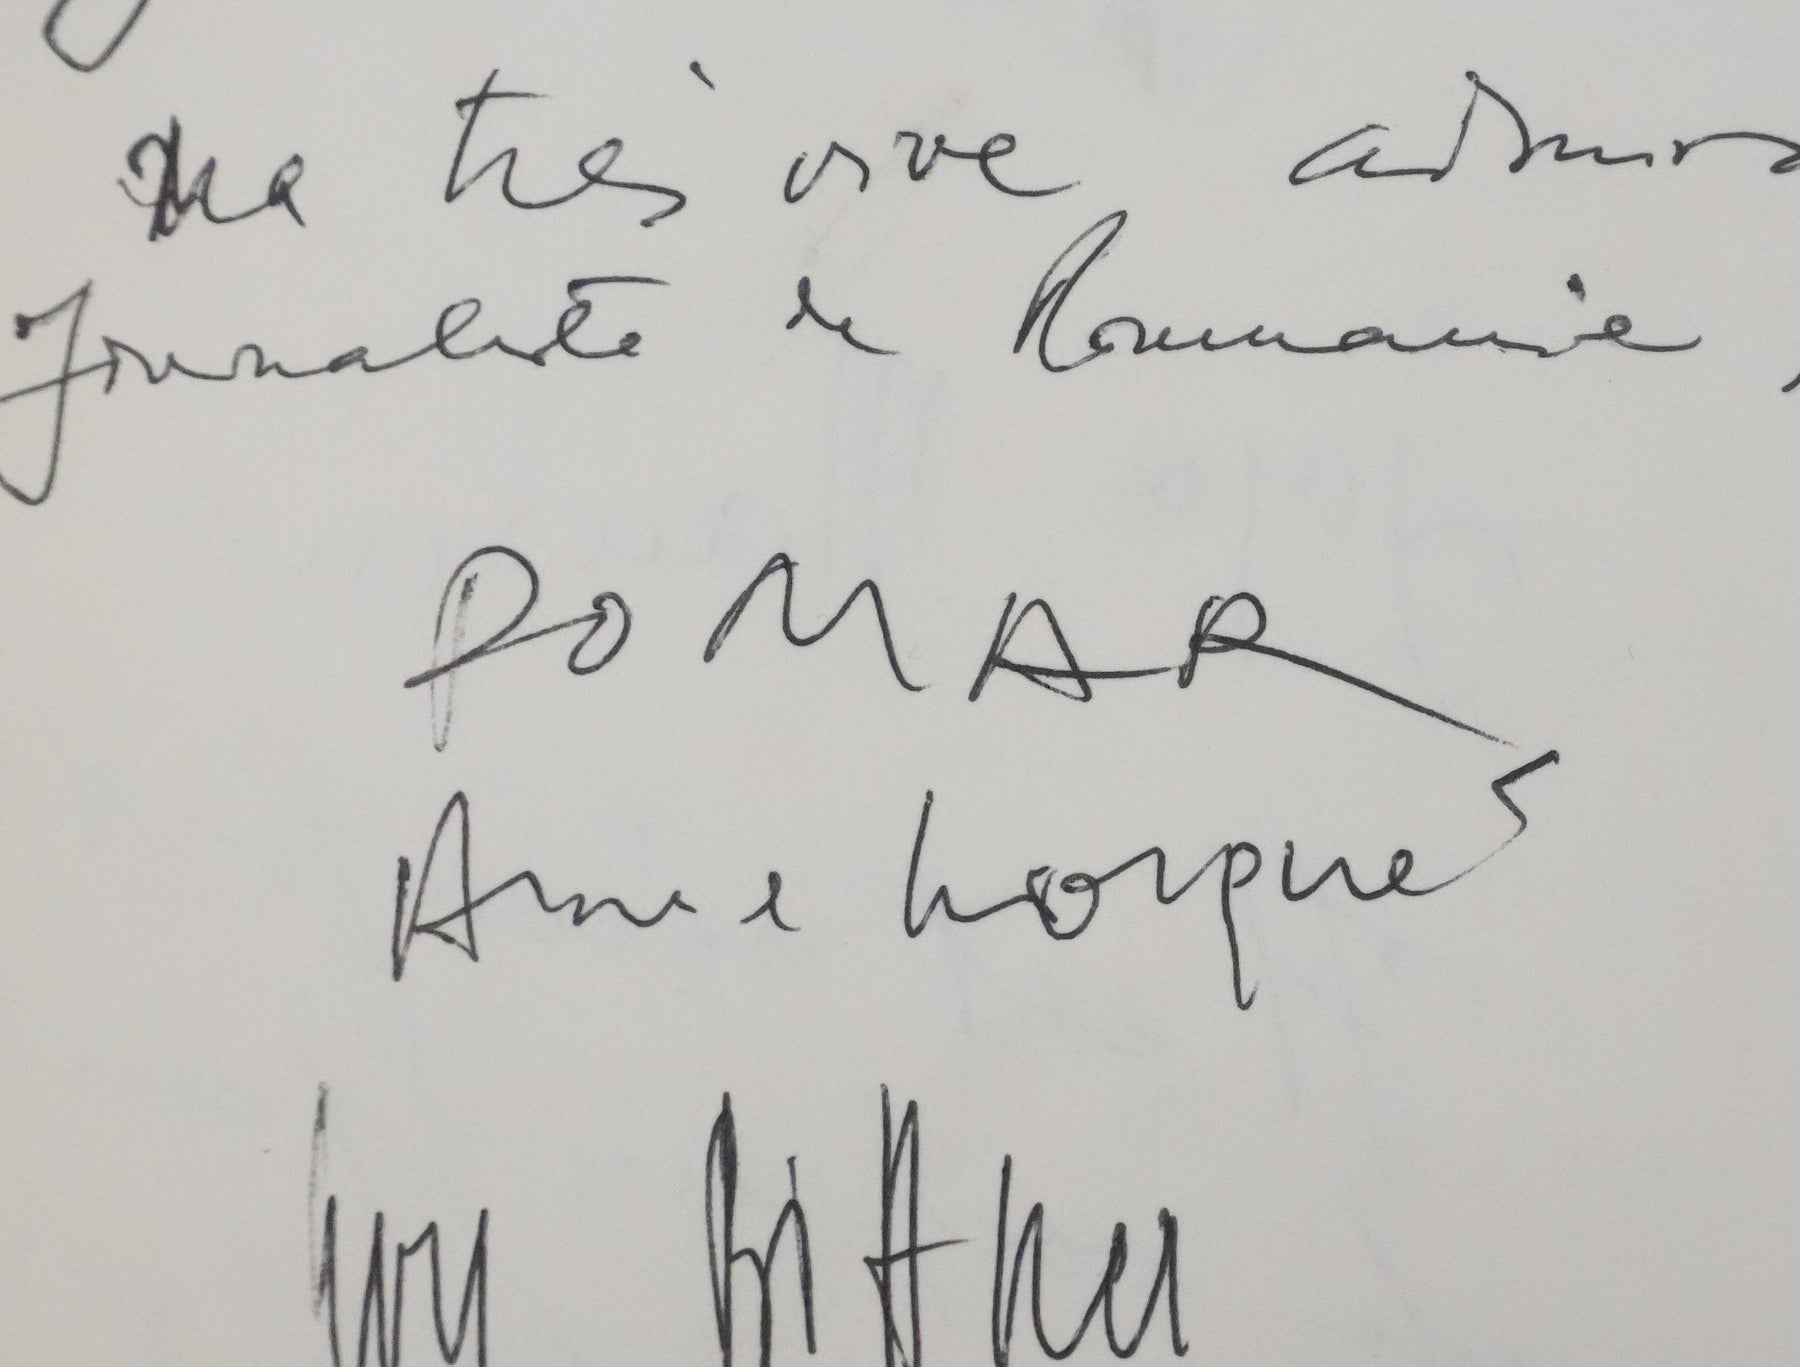 Ma très vive admira
Journaliste de Roumanie,
POMAR
Anne Lorgné